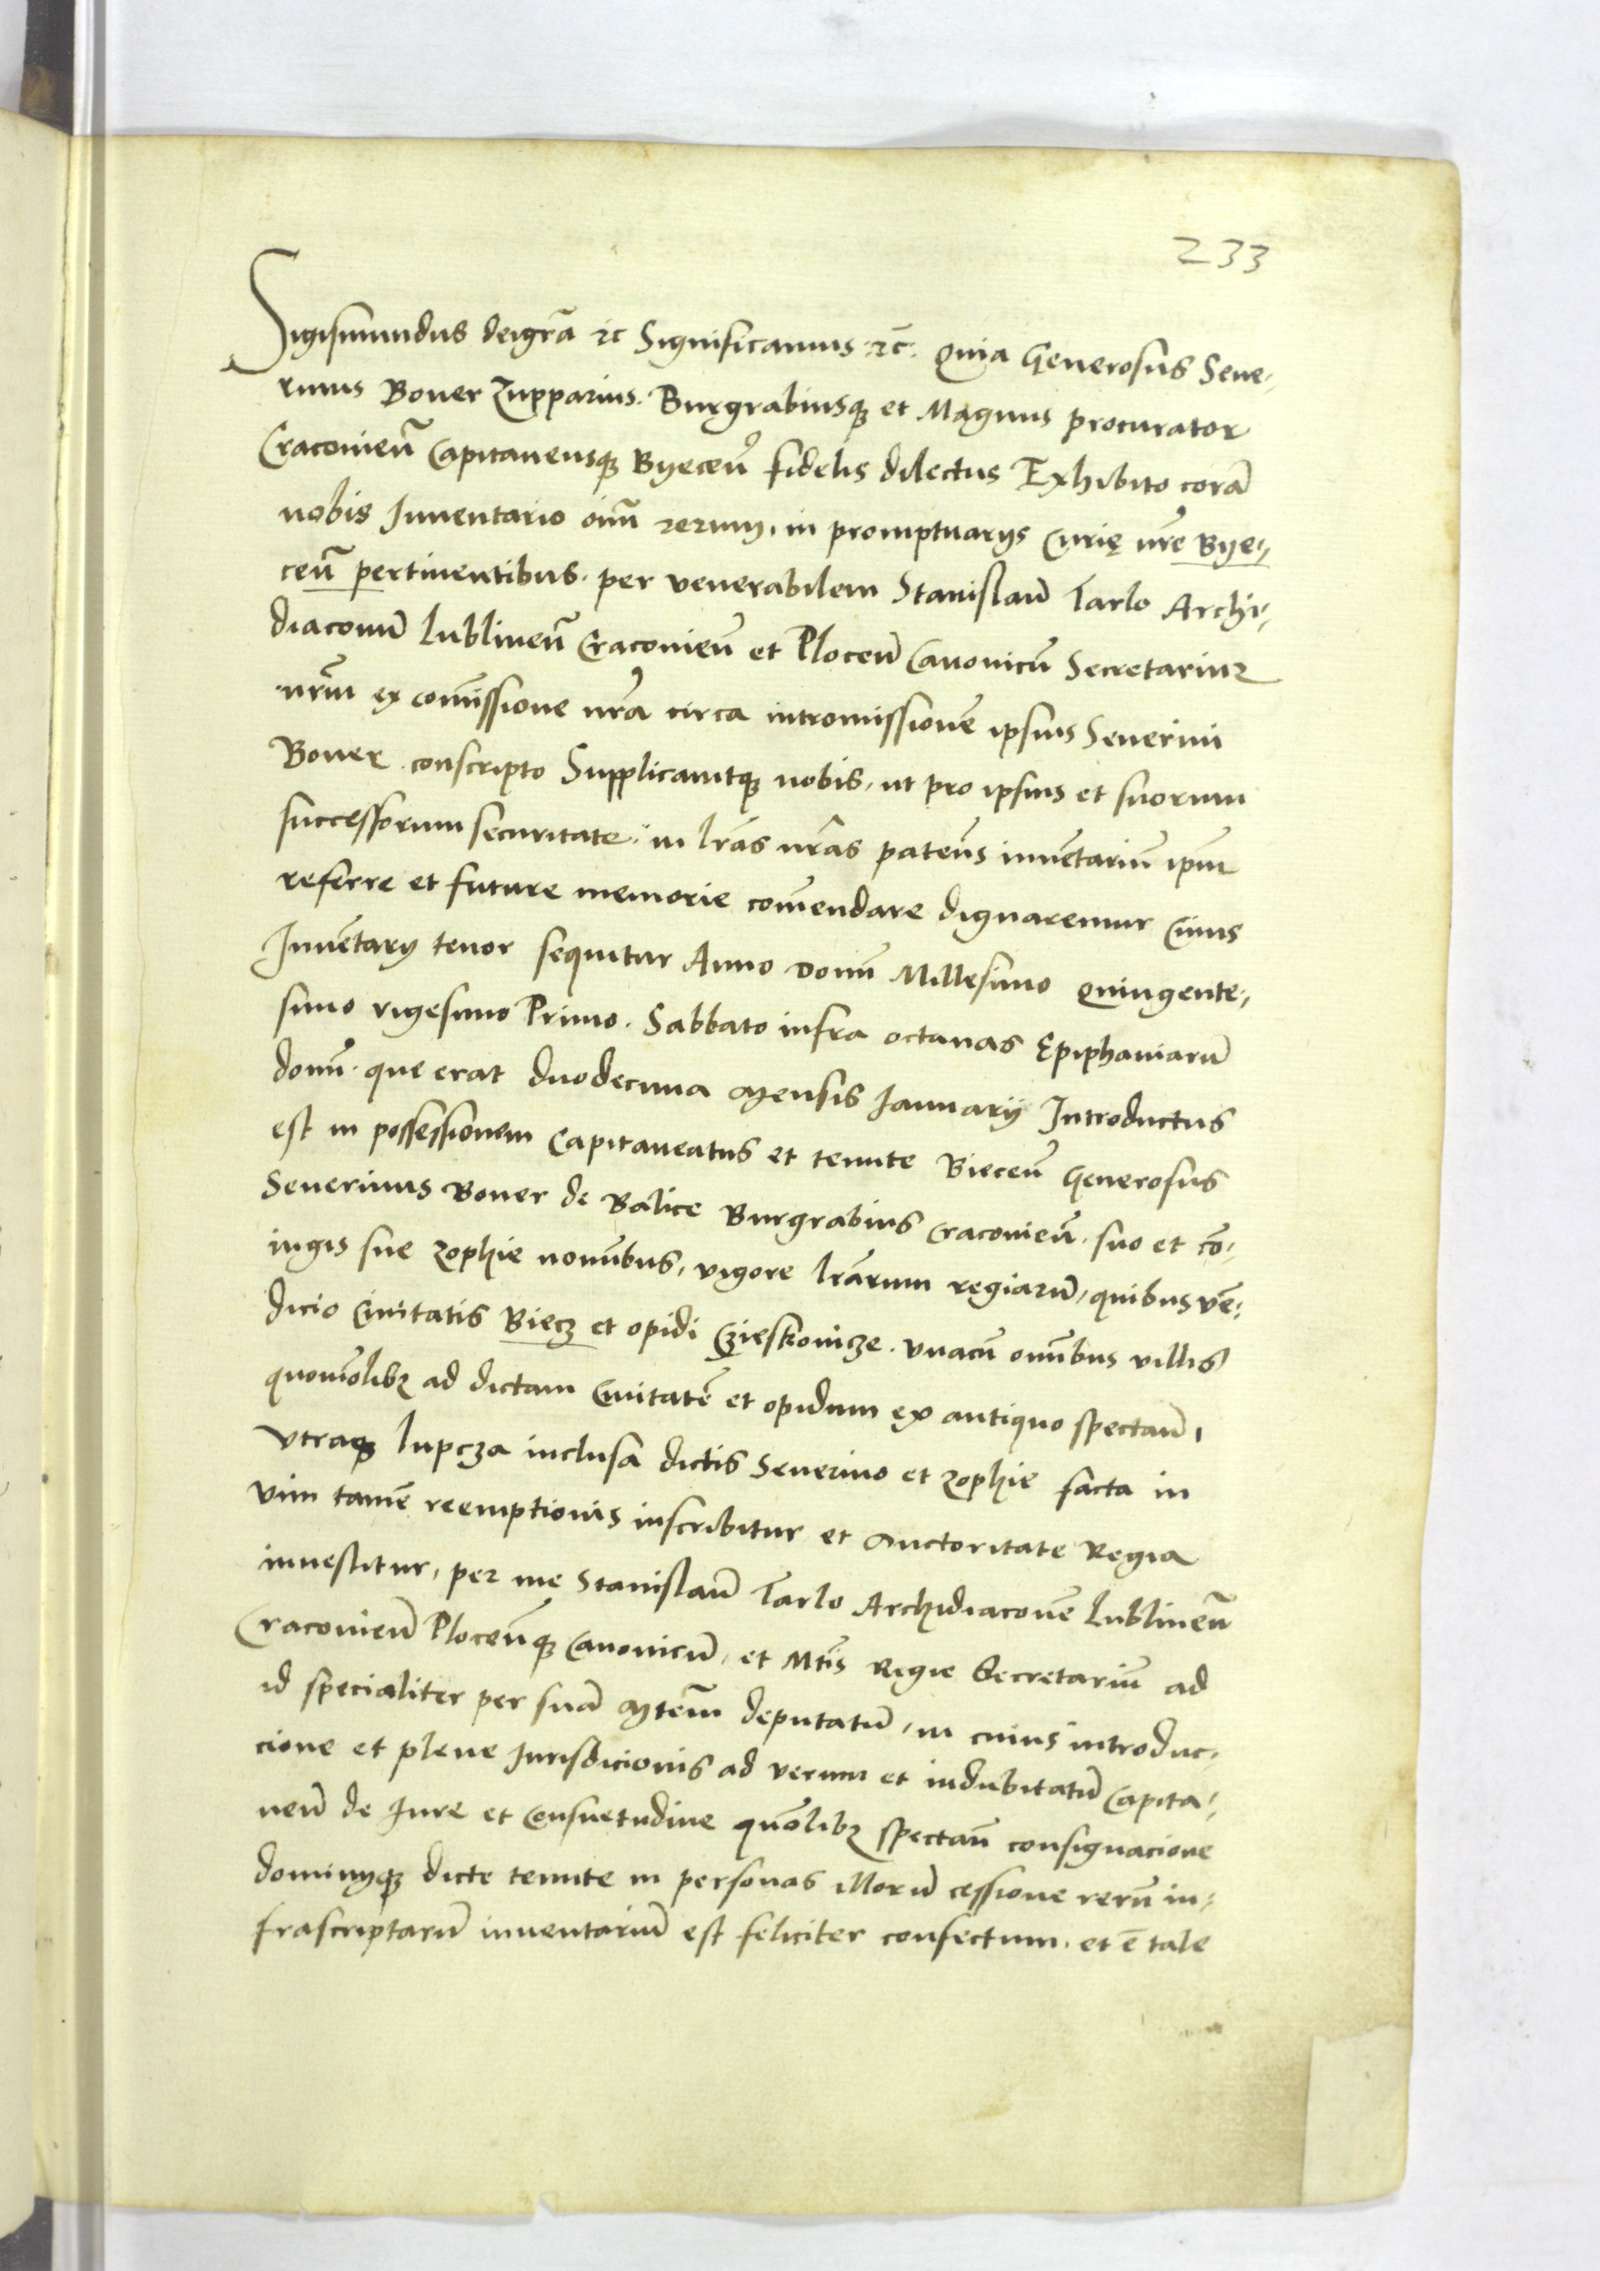 233
Sigismundus deigrā ꝛc Significamus ꝛc̄. Quia Generosus Seue-
rinus Boner Zupparius. Burgrabiusqꝫ et Magnus procurator
Cracovień Capitaneusqꝫ Byeceń fidelis dilectus Exhibito corā
nobis Inuentario oim̄ rerum, in promptuarijs Curię nr̄e Bye-
ceń pertinentibus. per venerabilem Stanislaū Tarlo Archi-
diaconū Lublineń Cracovień et Ploceń Canonicū Secretariuȝ
nrm̄ ex com̄issione nrā circa intromissionē ipsius Seuerini
Boner conscripto Supplicauitqꝫ nobis, ut pro ipsius et suorum
successorum securitate. in lrās nrās patens̄ inuētariū ipm̄
referre et future memorie com̄endare dignaremur Cuius
Inuētarij tenor sequitur Anno Domī Millesimo Quingente-
simo vigesimo Primo. Sabbato infra octauas Epiphaniarū
domī. que erat duodecima Mensis Januarij Introductus
est in possessionem Capitaneatus et tenute Bieceń Generosus
Seuerinus Boner de Balice Burgrabius Cracovień. suo et cō-
iugis sue Zophie nomībus, vigore lrārum regiarū, quibus vē-
dicio Ciuitatis Biecz et opidi Czieskouicze. vnacū omībus villis
quomōlibꝫ ad dictam Ciuitatē et opidum ex antiquo spectań,
vtraqꝫ Lupcza inclusa dictis Seuerino et Zophie facta in
vim tamē reemptionis inscribitur et Auctoritate Regia
inuestitur, per me Stanislaū Tarlo Archidiaconū Lublineń
Cracovień Ploceńqꝫ Canonicū, et Mtis̄ Regie Secretariū ad
id specialiter per suā Mtem̄ deputatū, in cuius introduc-
cione et plene Jurisdicionis ad verum et indubitatū Capita-
neū de Jure et Consuetudine quōlibꝫ spectań consignacione
dominijqꝫ dicte tenute in personas illorū cessione rerū in-
frascriptarū inuentariū est feliciter confectum. et ē tale